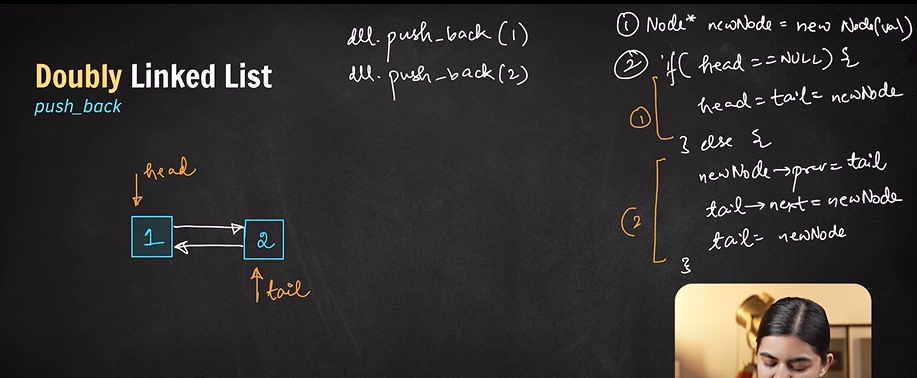 Doubly Linked List
push_back
dll.push_back(1)
dll.push_back(2)
① Node* newNode = new Node(val)
② if(head==NULL) {
① head=tail=newNode
} else {
newNode→prev=tail
(2 tail→next=newNode
tail=newNode
}
head
1 2
tail